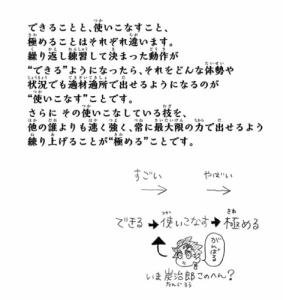 できることと、使いこなすこと、
極めることはそれぞれ違います。
繰り返し練習して決まった動作が
“できる”ようになったら、それをどんな体勢や
状況でも適材適所で出せるようになるのが
“使いこなす”ことです。
さらに その使いこなしている技を、
他の誰よりも速く強く、常に最大限の力で出せるよう
練り上げることが“極める”ことです。
すごい やばい
できる → 使いこなす → 極める
がんばる
いま炭治郎このへん?